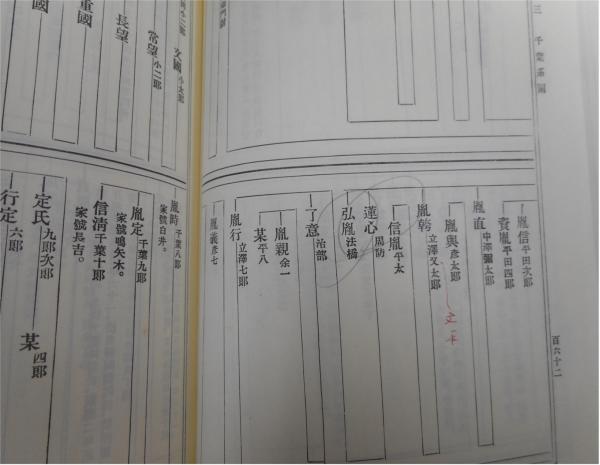 三 千葉系圖
百六十二
胤信 平田次郎
賚胤 平田四郎
胤直 中澤彌太郎
胤與 彦太郎
胤幹 立澤又太郎
信胤 平太
蓮心 周防
弘胤 法橋
了意 治部
胤親 余一
某 平八
胤行 立澤七郎
胤義 彦七
胤時 千葉八郎
家號白井。
胤定 千葉九郎
家號鳴矢木。
信清 千葉十郎
家號長吉。
定氏 九郎次郎
某 四郎
行定 六郎
文國 小太郎
常望 小二郎
長望
重國